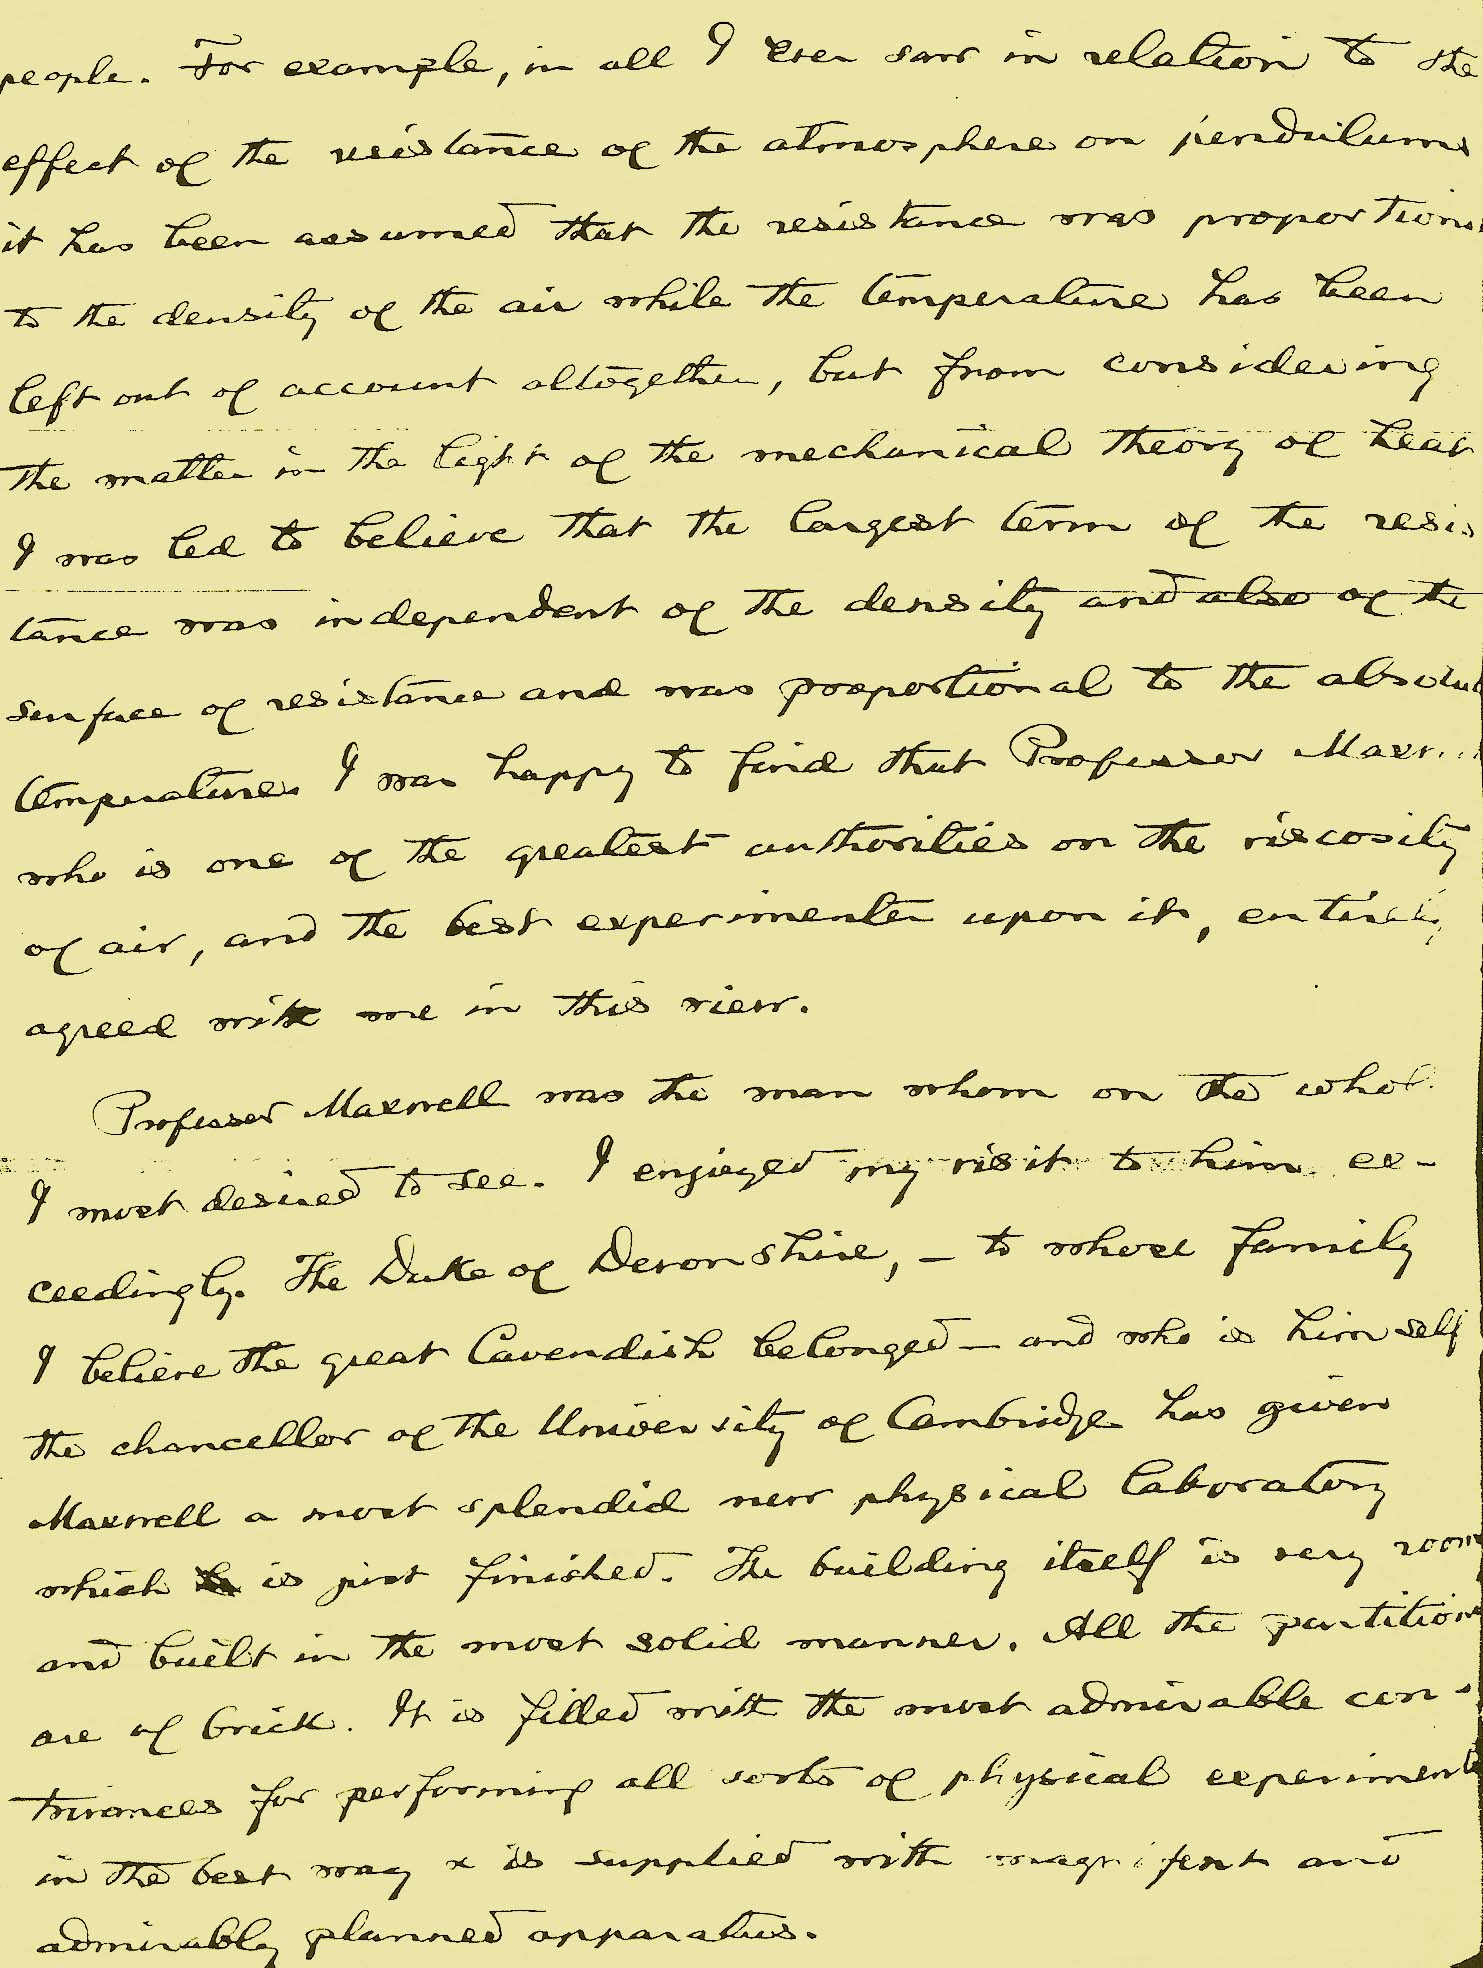 people. For example, in all I ever saw in relation to the
effect of the resistance of the atmosphere on pendulums
it has been assumed that the resistance was proportional
to the density of the air while the temperature has been
left out of account altogether, but from considering
the matter in the light of the mechanical theory of heat
I was led to believe that the largest term of the resis
tance was independent of the density and also of the
surface of resistance and was proportional to the absolute
temperature. I was happy to find that Professor Maxwell
who is one of the greatest authorities on the viscosity
of air, and the best experimenter upon it, entirely
agreed with me in this view.
Professor Maxwell was the man whom on the whole
I most desired to see. I enjoyed my visit to him ex-
ceedingly. The Duke of Devonshire, – to whose family
I believe the great Cavendish belonged – and who is himself
the chancellor of the University of Cambridge has given
Maxwell a most splendid new physical laboratory
which is just finished. The building itself is very roomy
and built in the most solid manner. All the partitions
are of brick. It is filled with the most admirable con-
trivances for performing all sorts of physical experiments
in the best way & is supplied with magnifent and
admirably planned apparatus.